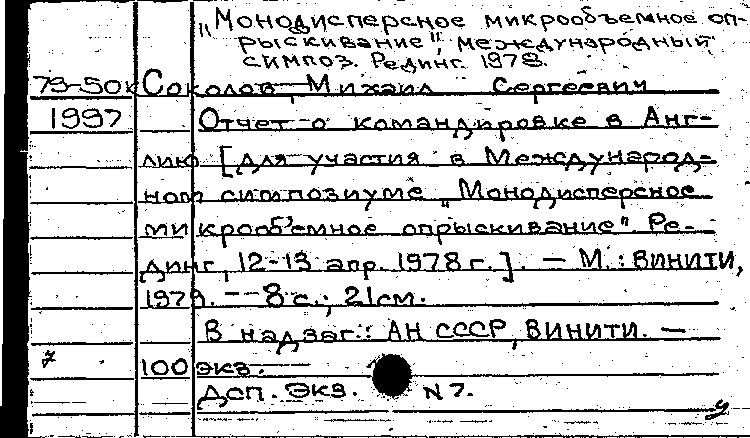 „Монодисперсное микрообъемное оп-
рыскивание", международный
симпоз. Рединг. 1978.
79-50к Соколов, Михаил Сергеевич
1997 Отчет о командировке в Анг-
лию [для участия в Международ-
ном симпозиуме „Монодисперсное
микрообъемное опрыскивание" Ре-
динг, 12-13 апр. 1978 г.]. — М.: ВИНИТИ,
1979. — 8 с.; 21 см.
В надзаг.: АН СССР, ВИНИТИ. —
100 экз.
Дсп. Экз. N 7.